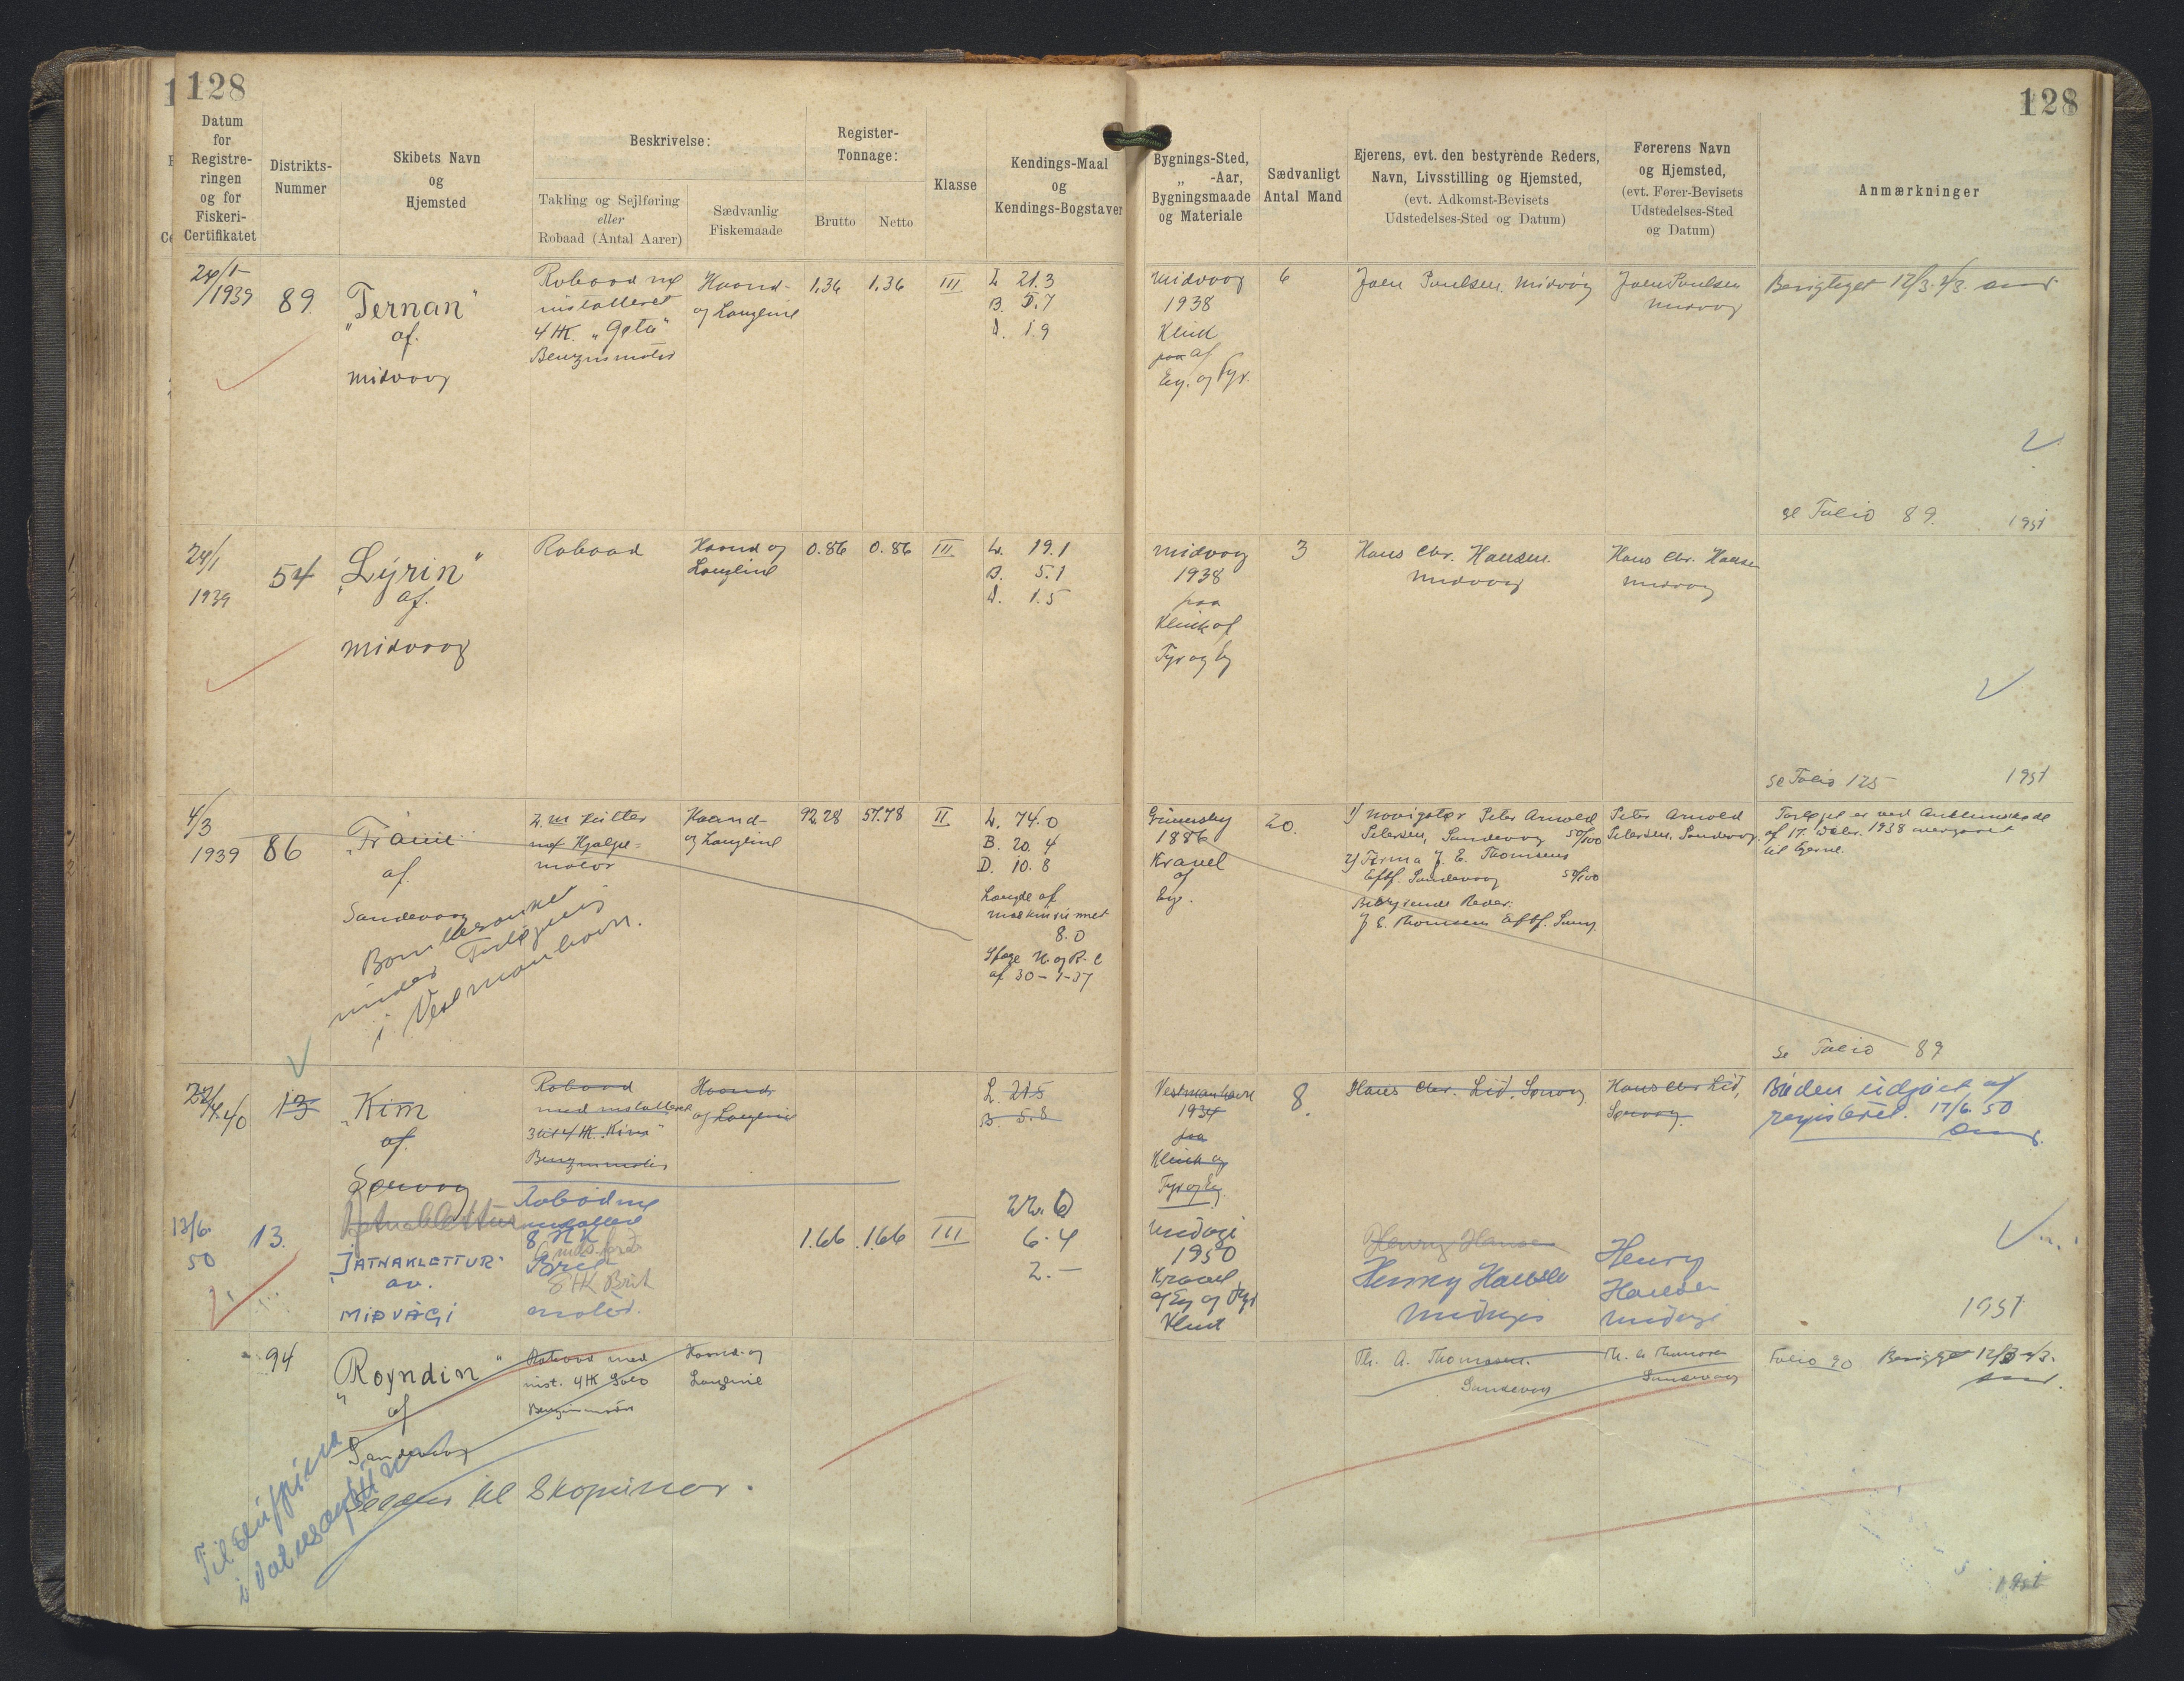 128
128
Datum
for
Registre-
ringen
og for
Fiskeri-
Certifikatet
Distrikts-
Nummer
Skibets Navn
og
Hjemsted
Beskrivelse:
Takling og Sejlføring
eller
Robaad (Antal Aarer)
Sædvanlig
Fiskemaade
Register-
Tonnage:
Brutto
Netto
Klasse
Kendings-Maal
og
Kendings-Bogstaver
Bygnings-Sted,
„ -Aar,
Bygningsmaade
og Materiale
Sædvanligt
Antal Mand
Ejerens, evt. den bestyrende Reders,
Navn, Livsstilling og Hjemsted,
(evt. Adkomst-Bevisets
Udstedelses-Sted og Datum)
Førerens Navn
og Hjemsted,
(evt. Fører-Bevisets
Udstedelses-Sted
og Datum)
Anmærkninger
24/1-
/1939
89.
„Ternan"
af.
Midvaag
Robaad m/
installeret
4 HK. „Gøta"
Benzinmotor
Haand-
og Langline
1.36
1.36
III
L 21.3
B. 5.7
D. 1.9
Midvaag
1938
Klink
paa af
Eg. og Fyr.
6
Joen Poulsen. Midvåg
Joen Poulsen
Midvaag
Berigtiget 12/3. 2/3.
se Folio 89.
1951
24/1
1939
54
„Lýrin"
af.
Midvaag
Robaad
Haand og
Langline
0.86
0.86
III
L. 19.1
B. 5.1
D. 1.5
Midvaag
1938
paa
Klink af
Fyr og Eg
3
Hans Chr. Hansen.
Midvaag
Hans Chr. Hansen
Midvaag
se Folio 125
1951
4/3
1939
86
af
Sandevaag
Bombesænket
under
i Vestmanhavn.
2. m Kutter
m/ Hjælpe-
motor
Haand-
og Langline
92.28
57.78
II
L. 74.0
B. 20.4
D. 10.8
Længde af
maskinrummet
8.0
af 30-9-37
Grimsby
1886
Kravel
af
Eg.
20.
1/ Navigatør Peter Arnold
Petersen, Sandevaag 50/100
2/ Firma J. E. Thomsens
Eftf. Sandevaag 50/100
Bestyrende Reder:
J. E. Thomsens Eftf. Sanvg.
Peter Arnold
Petersen, Sandevaag.
af 17. Oktbr. 1938
til Ejerne.
Se Folio 89
22/4 40
13
„Kim
af.
Sørvaag
Robaad
med installeret
3 til 4 HK. „Kim"
Benzinmotor
Haand-
og Langline
L. 21.5
B. 5.8
Vestmanhavn
1934
paa
Klink af
Fyr og Eg
8.
Hans Chr. Lid, Sørvaag
Hans Chr Lid,
Sørvaag.
Båden udgået af
registeret. 17/6. 50
13/6.
50
13.
„JATNAKLETTUR"
av.
MIÐVÁGI
Robåd m/
installeret
8 HK
8 HK Brit
motor.
1.66
1.66
III
22.0
6.4
2.-
Miðvági
1950
Kravel
af Eg og Fyr
Klink
Henry Hansen
Henry Hansen
Miðvági
Henry
Hansen
Miðvági
1951
94
„Royndin"
af
Sandevaag
Robaad med
inst. 4 HK Solo
Benzinmotor
Haand- og
Langline
Th. A. Thomsen.
Sandevaag
Th. A. Thomsen
Sandevaag
Folio 90
Berigtiget 12/3 2/3.
til Skopun
1951